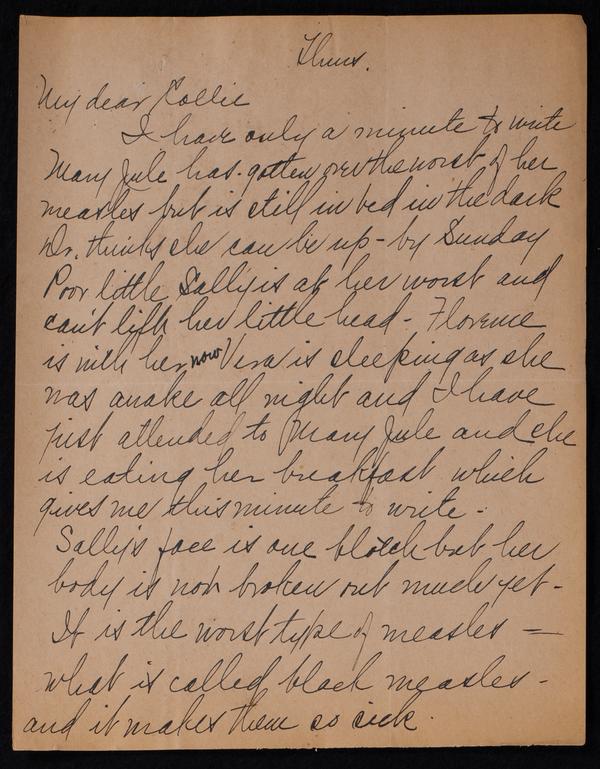 Thurs.
My dear Collie
I have only a minute to write
Mary Jule has gotten over the worst of her
measles but is still in bed in the dark
Dr. thinks she can be up - by Sunday
Poor little Sally is at her worst and
can't lift her little head - Florence
is with her now Vera is sleeping as she
was awake all night and I have
just attended to Mary Jule and she
is eating her breakfast which
gives me this minute to write -
Sally's face is one blotch but her
body is not broken out much yet -
It is the worst type of measles —
what is called black measles -
and it makes them so sick.